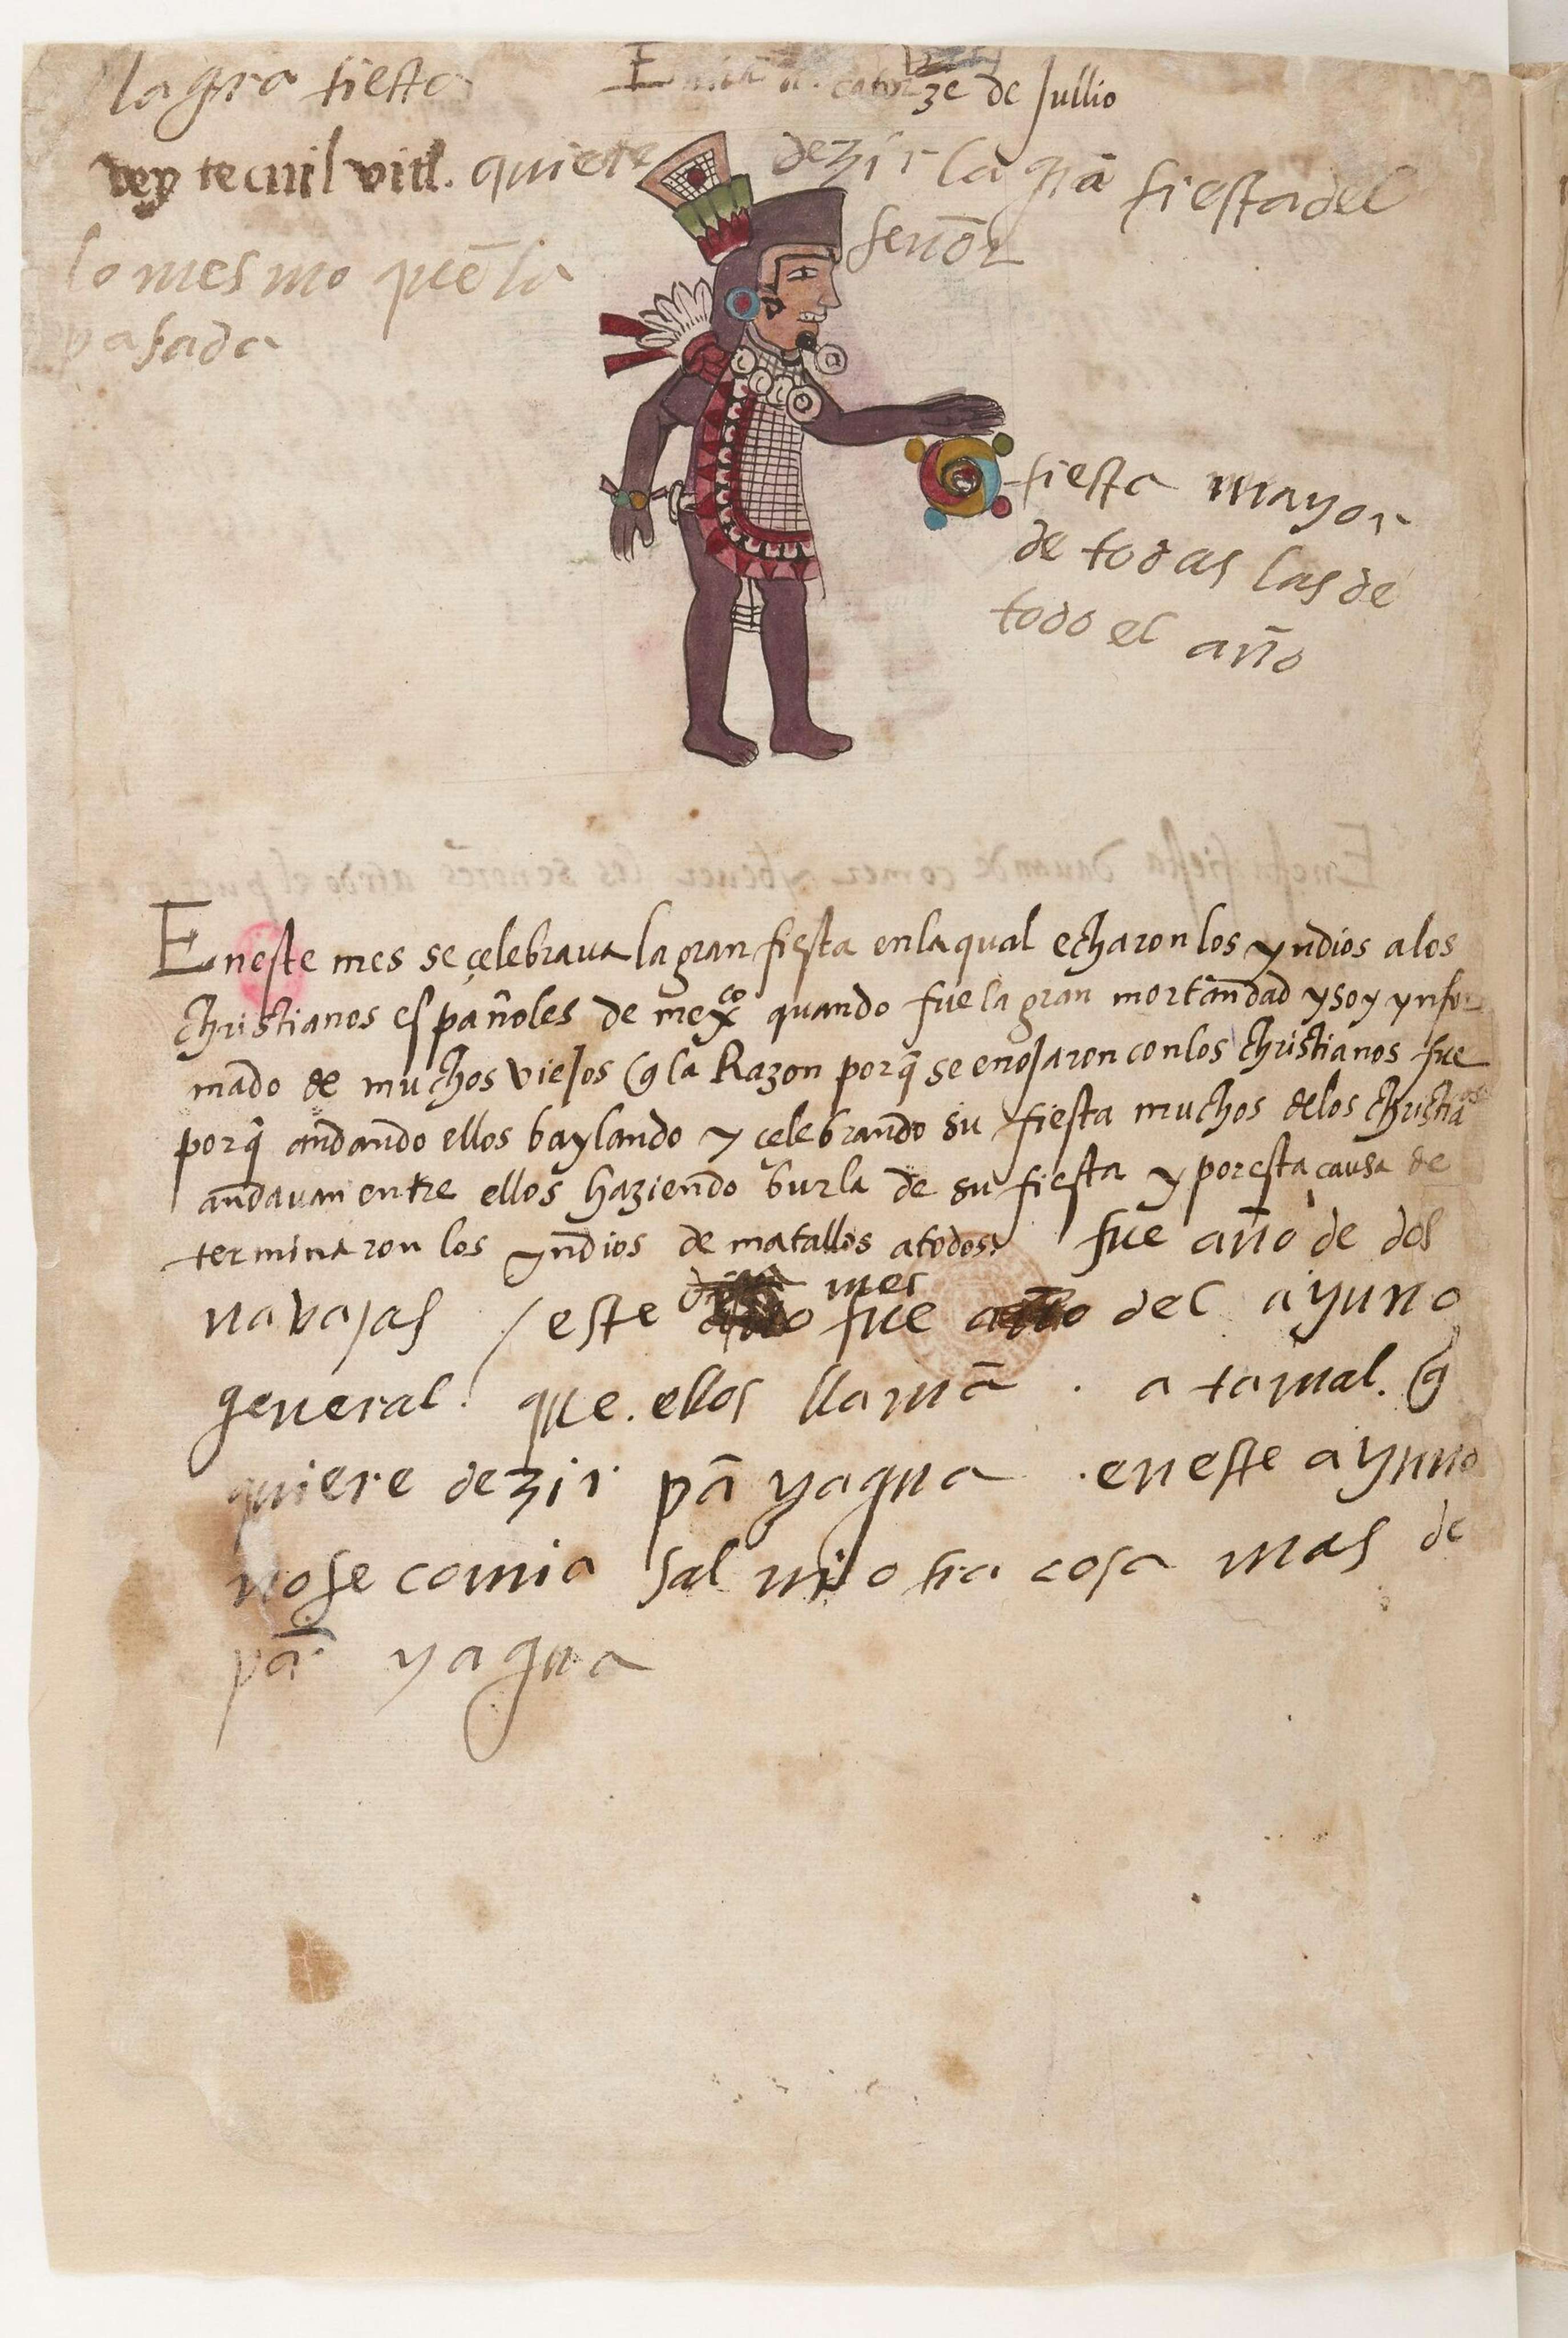 la gra fiesta
Entra a. catorze de Jullio
vey tecuil vitl. quiere dezir la grā fiesta del
señor
lo mesmo q̄ ē la
pasada
fiesta mayor
de todas las de
todo el año
En este mes se çelebraua la gran fiesta en la qual echaron los yndios a los
christianos españoles de mexco quando fue la gran mortandad y soy ynfor
mado de muchos viejos q̄ la Razon porq̄ se enojaron con los christianos fue
porq̄ andando ellos baylando y çelebrando su fiesta muchos de los christia
andauan entre ellos haziendo burla de su fiesta y por esta causa de
terminaron los yndios de matallos a todos. fue año de dos
navajas / este mes fue del ayuno
general. que. ellos llamā . a tamal. q̄
quiere dezir pā yagua . en este ayuno
no se comia sal ni otra cosa mas de
pā yagua